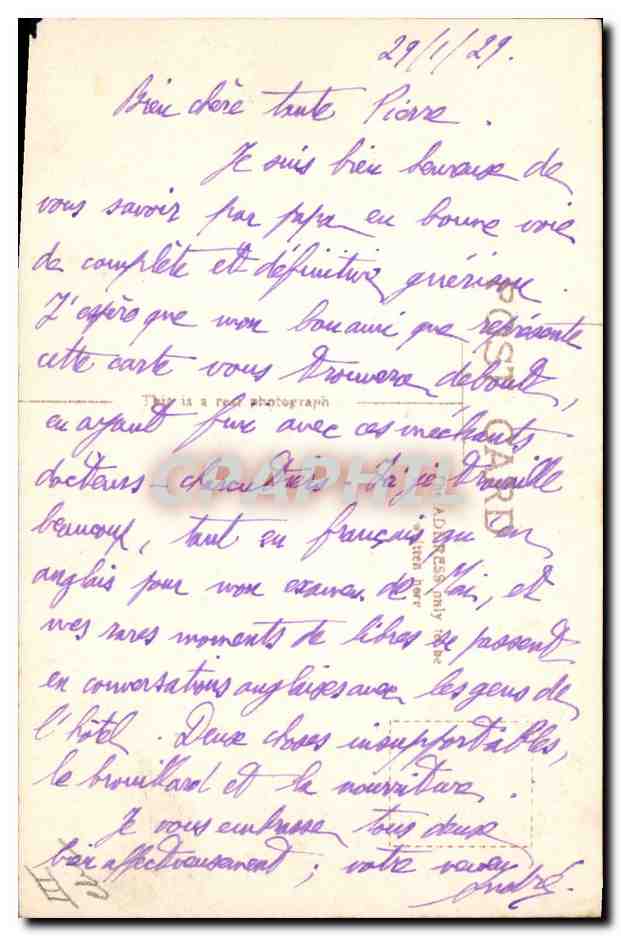 29/1/29.
Bien chère tante Pierre.
Je suis bien heureux de
vous savoir par papa en bonne voie
de complète et définitive guérison.
J'espère que mon bon ami que représente
cette carte vous trouvera debout,
This is a real photograph
en ayant fini avec ces méchants
docteurs - charcutiers - Ici je travaille
beaucoup, tant en français qu'en
anglais pour mon examen de Mai, et
mes rares moments de libres se passent
en conversations anglaises avec les gens de
l'hôtel. Deux choses insupportables,
le brouillard et la nourriture.
Je vous embrasse tous deux
bien affectueusement ; votre neveu
André.
POST CARD
ADDRESS only to be
written here
CPAPHIL
III